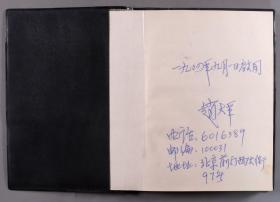 一九九〇年九月一日啟用
赵大军
电话：6016389
邮编：100031
地址：北京前门西大街
97号